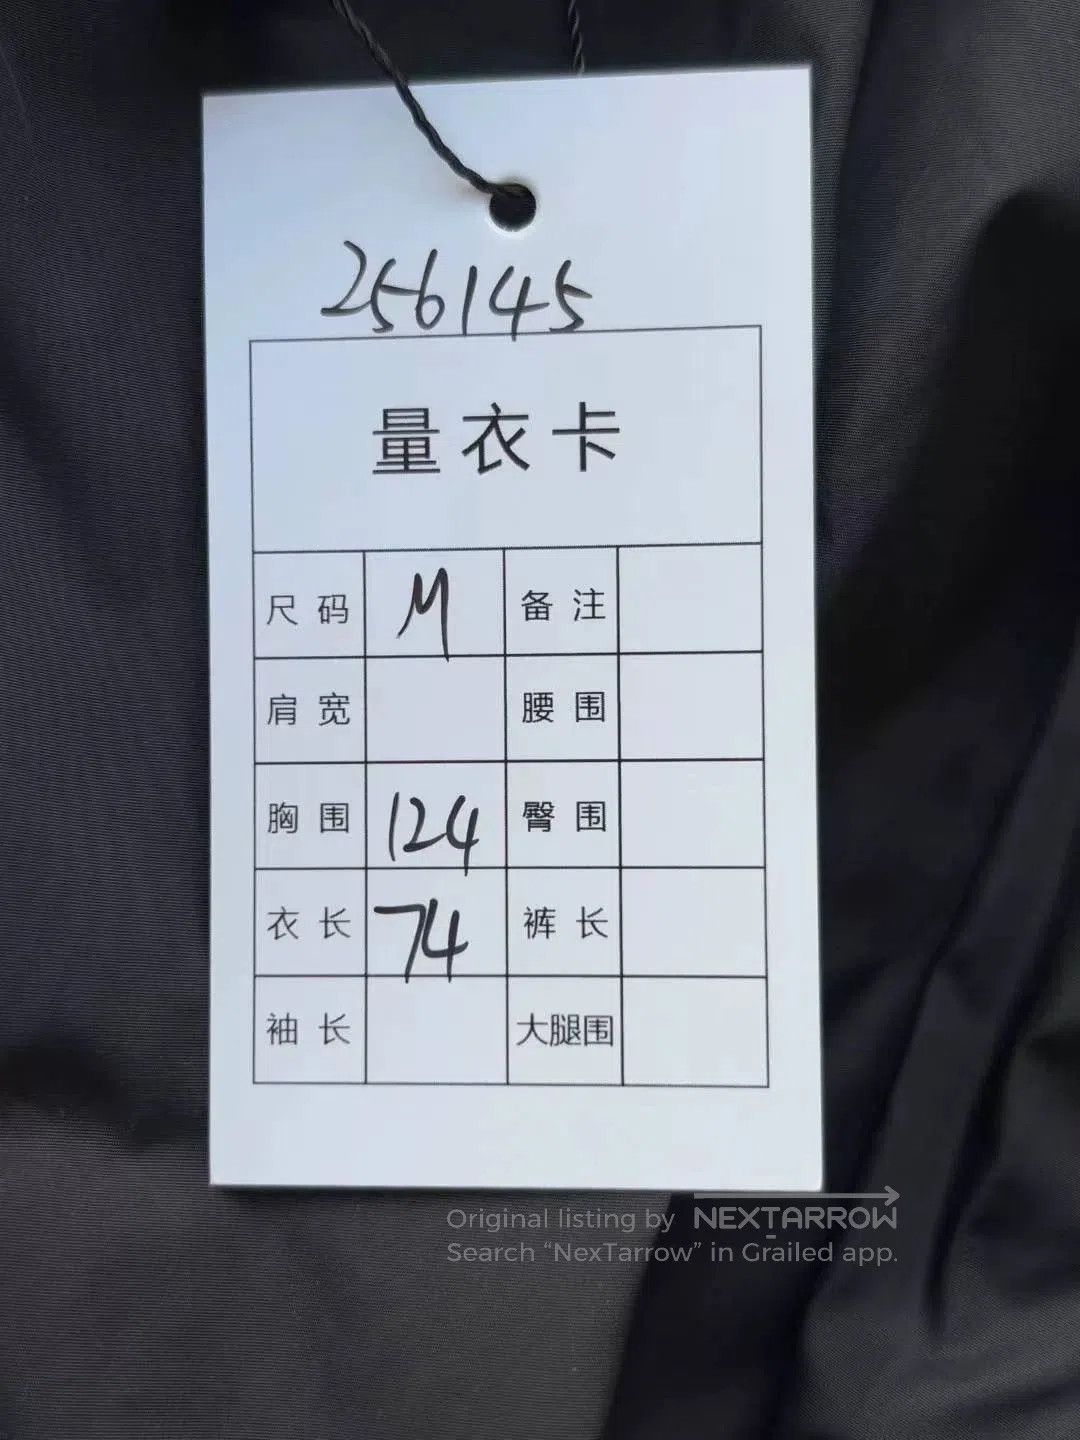 256145
量衣卡
尺码 M 备注
肩宽 腰围
胸围 124 臀围
衣长 74 裤长
袖长 大腿围
Original listing by NEXTARROW
Search “NexTarrow” in Grailed app.